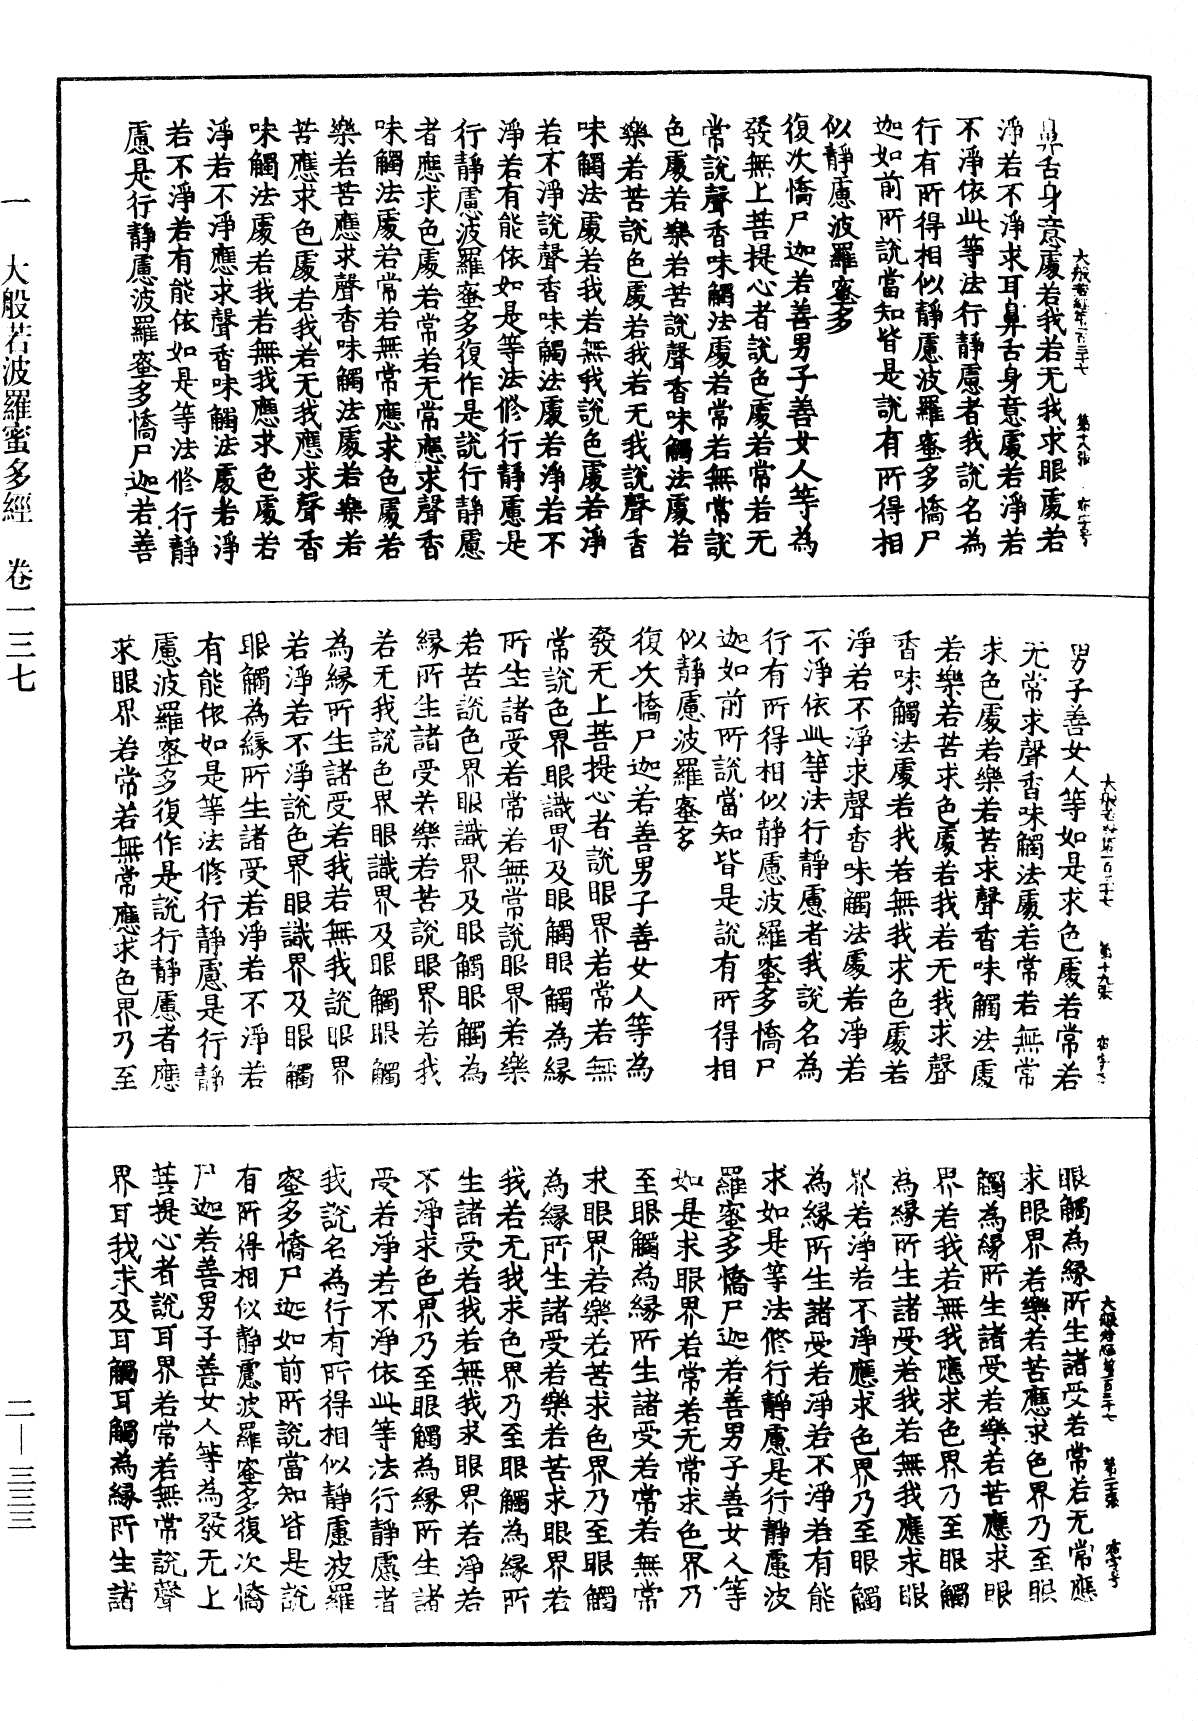 鼻舌身意處若我若无我求眼處若
淨若不淨求耳鼻舌身意處若淨若
不淨依此等法行靜慮者我說名為
行有所得相似靜慮波羅蜜多憍尸
迦如前所說當知皆是說有所得相
似靜慮波羅蜜多
復次憍尸迦若善男子善女人等為
發無上菩提心者說色處若常若无
常說聲香味觸法處若常若無常說
色處若樂若苦說聲香味觸法處若
樂若苦說色處若我若无我說聲香
味觸法處若我若無我說色處若淨
若不淨說聲香味觸法處若淨若不
淨若有能依如是等法修行靜慮是
行靜慮波羅蜜多復作是說行靜慮
者應求色處若常若无常應求聲香
味觸法處若常若無常應求色處若
樂若苦應求聲香味觸法處若樂若
苦應求色處若我若无我應求聲香
味觸法處若我若無我應求色處若
淨若不淨應求聲香味觸法處若淨
若不淨若有能依如是等法修行靜
慮是行靜慮波羅蜜多憍尸迦若善
男子善女人等如是求色處若常若
无常求聲香味觸法處若常若無常
求色處若樂若苦求聲香味觸法處
若樂若苦求色處若我若无我求聲
香味觸法處若我若無我求色處若
淨若不淨求聲香味觸法處若淨若
不淨依此等法行靜慮者我說名為
行有所得相似靜慮波羅蜜多憍尸
迦如前所說當知皆是說有所得相
似靜慮波羅蜜多
復次憍尸迦若善男子善女人等為
發无上菩提心者說眼界若常若無
常說色界眼識界及眼觸眼觸為緣
所生諸受若常若無常說眼界若樂
若苦說色界眼識界及眼觸眼觸為
緣所生諸受若樂若苦說眼界若我
若无我說色界眼識界及眼觸眼觸
為緣所生諸受若我若無我說眼界
若淨若不淨說色界眼識界及眼觸
眼觸為緣所生諸受若淨若不淨若
有能依如是等法修行靜慮是行靜
慮波羅蜜多復作是說行靜慮者應
求眼界若常若無常應求色界乃至
眼觸為緣所生諸受若常若无常應
求眼界若樂若苦應求色界乃至眼
觸為緣所生諸受若樂若苦應求眼
界若我若無我應求色界乃至眼觸
為緣所生諸受若我若無我應求眼
界若淨若不淨應求色界乃至眼觸
為緣所生諸受若淨若不淨若有能
求如是等法修行靜慮是行靜慮波
羅蜜多憍尸迦若善男子善女人等
如是求眼界若常若无常求色界乃
至眼觸為緣所生諸受若常若無常
求眼界若樂若苦求色界乃至眼觸
為緣所生諸受若樂若苦求眼界若
我若无我求色界乃至眼觸為緣所
生諸受若我若無我求眼界若淨若
不淨求色界乃至眼觸為緣所生諸
受若淨若不淨依此等法行靜慮者
我說名為行有所得相似靜慮波羅
蜜多憍尸迦如前所說當知皆是說
有所得相似靜慮波羅蜜多復次憍
尸迦若善男子善女人等為發无上
菩提心者說耳界若常若無常說聲
界耳我求及耳觸耳觸為緣所生諸
一 大般若波羅蜜多經 卷一三七
二—三三三